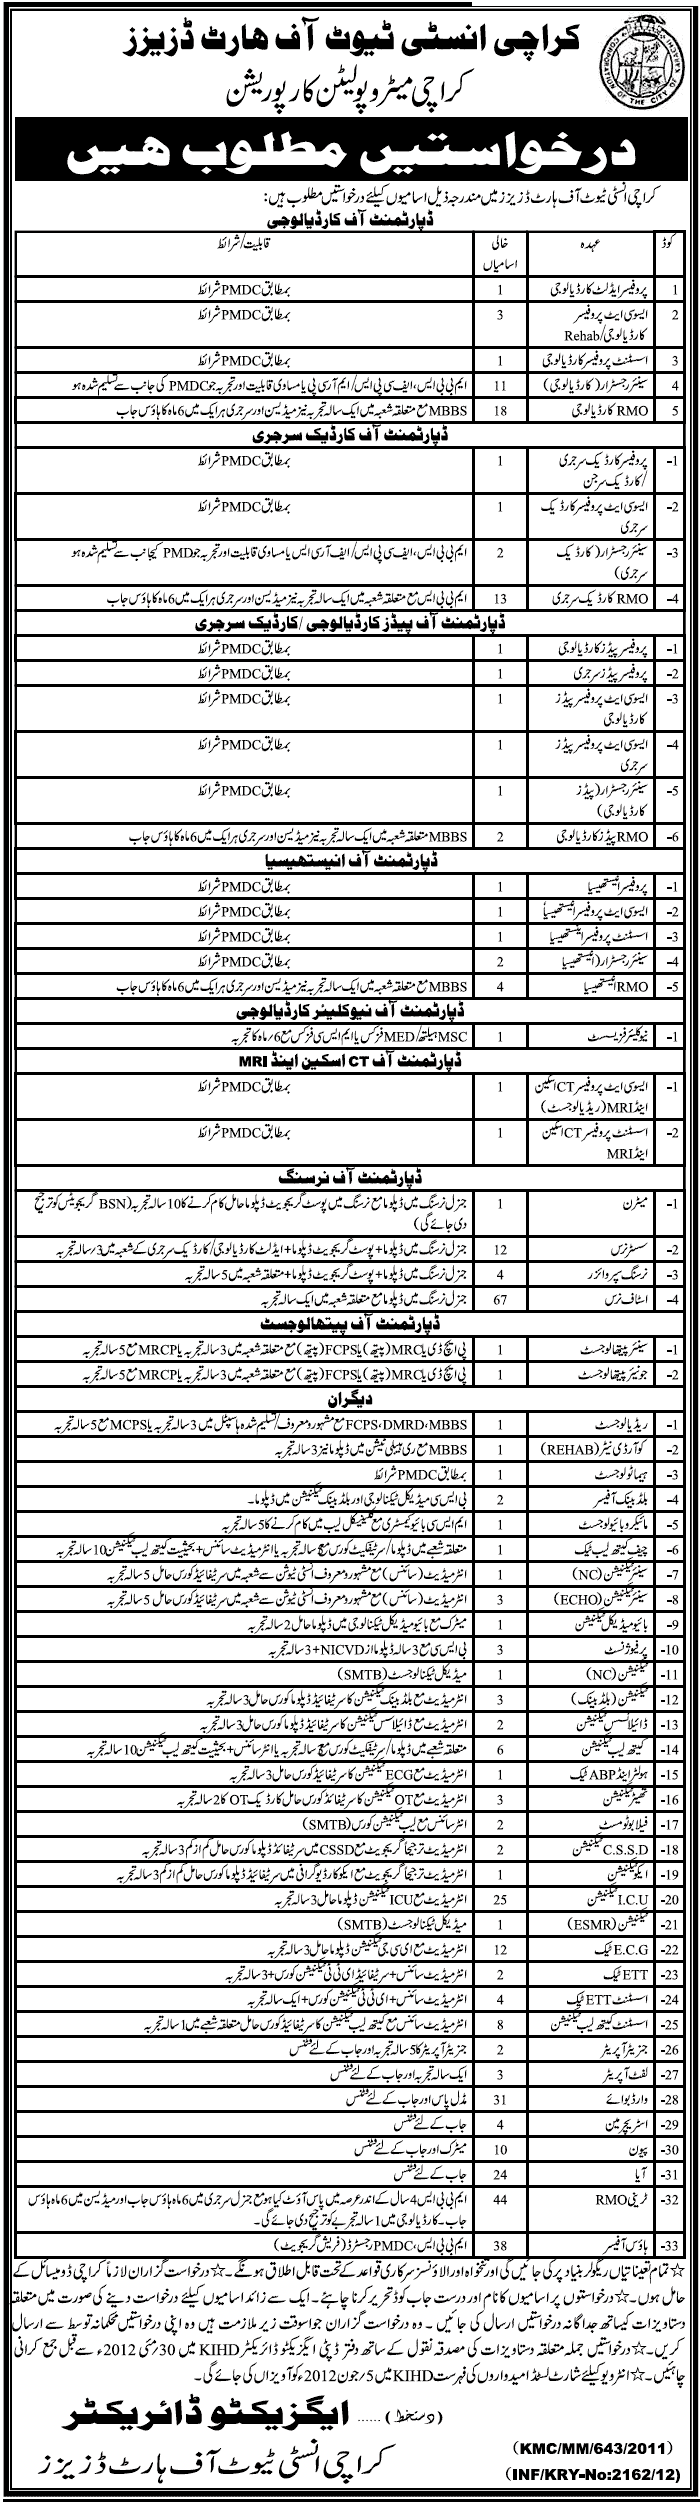 کراچی انسٹی ٹیوٹ آف ہارٹ ڈزیزز
کراچی میٹروپولیٹن کارپوریشن
درخواستیں مطلوب ہیں
کراچی انسٹی ٹیوٹ آف ہارٹ ڈزیزز میں مندرجہ ذیل اسامیوں کیلئے درخواستیں مطلوب ہیں:
ڈپارٹمنٹ آف کارڈیالوجی
کوڈ عہدہ خالی اسامیاں قابلیت/شرائط
1 پروفیسر ایڈلٹ کارڈیالوجی 1 بمطابق PMDC شرائط
2 ایسوسی ایٹ پروفیسر کارڈیالوجی/Rehab 3 بمطابق PMDC شرائط
3 اسسٹنٹ پروفیسر کارڈیالوجی 1 بمطابق PMDC شرائط
4 سینئر رجسٹرار (کارڈیالوجی) 11 ایم بی بی ایس، ایف سی پی ایس/ایم آر سی پی یا مساوی قابلیت اور تجربہ جو PMDC کی جانب سے تسلیم شدہ ہو
5 RMO کارڈیالوجی 18 MBBS مع متعلقہ شعبہ میں ایک سالہ تجربہ نیز میڈیسن اور سرجری ہر ایک میں 6 ماہ کا ہاؤس جاب
ڈپارٹمنٹ آف کارڈیک سرجری
1- پروفیسر کارڈیک سرجری/کارڈیک سرجن 1 بمطابق PMDC شرائط
2- ایسوسی ایٹ پروفیسر کارڈیک سرجری 1 بمطابق PMDC شرائط
3- سینئر رجسٹرار (کارڈیک سرجری) 2 ایم بی بی ایس، ایف سی پی ایس/ایف آر سی ایس یا مساوی قابلیت اور تجربہ جو PMD کیجانب سے تسلیم شدہ ہو
4- RMO کارڈیک سرجری 13 ایم بی بی ایس مع متعلقہ شعبہ میں ایک سالہ تجربہ نیز میڈیسن اور سرجری ہر ایک میں 6 ماہ کا ہاؤس جاب
ڈپارٹمنٹ آف پیڈز کارڈیالوجی/کارڈیک سرجری
1- پروفیسر پیڈز کارڈیالوجی 1 بمطابق PMDC شرائط
2- پروفیسر پیڈز سرجری 1 بمطابق PMDC شرائط
3- ایسوسی ایٹ پروفیسر پیڈز کارڈیالوجی 1 بمطابق PMDC شرائط
4- ایسوسی ایٹ پروفیسر پیڈز سرجری 1 بمطابق PMDC شرائط
5- سینئر رجسٹرار (پیڈز کارڈیالوجی) 1 بمطابق PMDC شرائط
6- RMO پیڈز کارڈیالوجی 2 MBBS متعلقہ شعبہ میں ایک سالہ تجربہ نیز میڈیسن اور سرجری ہر ایک میں 6 ماہ کا ہاؤس جاب
ڈپارٹمنٹ آف انیستھیسیا
1- پروفیسر انیستھیسیا 1 بمطابق PMDC شرائط
2- ایسوسی ایٹ پروفیسر انیستھیسیا 1 بمطابق PMDC شرائط
3- اسسٹنٹ پروفیسر انیستھیسیا 1 بمطابق PMDC شرائط
4- سینئر رجسٹرار (انیستھیسیا 2 بمطابق PMDC شرائط
5- RMO انیستھیسیا 4 MBBS مع متعلقہ شعبہ میں ایک سالہ تجربہ نیز میڈیسن اور سرجری ہر ایک میں 6 ماہ کا ہاؤس جاب
ڈپارٹمنٹ آف نیوکلیئر کارڈیالوجی
1- نیوکلیئر فزیسسٹ 1 MSC ہیلتھ/MED فزکس یا ایم ایس سی فزکس مع 6/ماہ کا تجربہ
ڈپارٹمنٹ آف CT اسکین اینڈ MRI
1- ایسوسی ایٹ پروفیسر CT اسکین اینڈ MRI (ریڈیالوجسٹ) 1 بمطابق PMDC شرائط
2- اسسٹنٹ پروفیسر CT اسکین اینڈ MRI 1 بمطابق PMDC شرائط
ڈپارٹمنٹ آف نرسنگ
1- میٹرن 1 جنرل نرسنگ میں ڈپلوما مع نرسنگ میں پوسٹ گریجویٹ ڈپلوما حامل کام کرنے کا 10 سالہ تجربہ (BSN گریجویٹس کو ترجیح دی جائے گی)
2- سسٹر نرس 12 جنرل نرسنگ میں ڈپلوما + پوسٹ گریجویٹ ڈپلوما + ایڈلٹ کارڈیالوجی/کارڈیک سرجری کے شعبہ میں 3/سالہ تجربہ
3- نرسنگ سپروائزر 4 جنرل نرسنگ میں ڈپلوما + پوسٹ گریجویٹ ڈپلوما + متعلقہ شعبہ میں 5 سالہ تجربہ
4- اسٹاف نرس 67 جنرل نرسنگ میں ڈپلوما مع متعلقہ شعبہ میں ایک سالہ تجربہ
ڈپارٹمنٹ آف پیتھالوجسٹ
1- سینئر پیتھالوجسٹ 1 پی ایچ ڈی یا MRC (پیتھ) یا FCPS (پیتھ) مع متعلقہ شعبہ میں 3 سالہ تجربہ یا MRCP مع 5 سالہ تجربہ
2- جونیئر پیتھالوجسٹ 1 پی ایچ ڈی یا MRC (پیتھ) یا FCPS (پیتھ) مع متعلقہ شعبہ میں 3 سالہ تجربہ یا MRCP مع 5 سالہ تجربہ
دیگران
1- ریڈیالوجسٹ 1 FCPS، DMRD، MBBS مع مشہور و معروف/تسلیم شدہ ہاسپٹل میں 3 سالہ تجربہ یا MCPS مع 5 سالہ تجربہ
2- کوآرڈی نیٹر (REHAB) 1 MBBS مع ری ہیبلی ٹیشن میں ڈپلوما نیز 3 سالہ تجربہ
3- ہیماٹولوجسٹ 1 بمطابق PMDC شرائط
4- بلڈ بینک آفیسر 2 بی ایس سی میڈیکل ٹیکنالوجی اور بلڈ بینک ٹیکنیشن میں ڈپلوما۔
5- مائیکروبایولوجسٹ 1 ایم ایس سی بائیو کیمسٹری مع کلینیکل لیب میں کام کرنے کا 5 سالہ تجربہ
6- چیف کیتھ لیب ٹیک 1 متعلقہ شعبے میں ڈپلوما/سرٹیفکیٹ کورس مع سالہ تجربہ یا انٹرمیڈیٹ سائنس + بحیثیت کیتھ لیب ٹیکنیشن 10 سالہ تجربہ
7- سینئر ٹیکنیشن (NC) 1 انٹرمیڈیٹ (سائنس) مع مشہور و معروف انسٹی ٹیوشن سے شعبہ میں سرٹیفائیڈ کورس حامل 5 سالہ تجربہ
8- سینئر ٹیکنیشن (ECHO) 3 انٹرمیڈیٹ (سائنس) مع مشہور و معروف انسٹی ٹیوشن سے شعبہ میں سرٹیفائیڈ کورس حامل 5 سالہ تجربہ
9- بائیو میڈیکل ٹیکنیشن 1 میٹرک مع بائیو میڈیکل ٹیکنالوجی میں ڈپلوما حامل 2 سالہ تجربہ
10- پرفیوژنسٹ 3 بی ایس سی مع 3 سالہ ڈپلوما از NICVD + 3 سالہ تجربہ
11- ٹیکنیشن (NC) 1 میڈیکل ٹیکنالوجسٹ (SMTB)
12- ٹیکنیشن (بلڈ بینک) 3 انٹرمیڈیٹ مع بلڈ بینک ٹیکنیشن کا سرٹیفائیڈ ڈپلوما کورس حامل 3 سالہ تجربہ
13- ڈائیلاسس ٹیکنیشن 2 انٹرمیڈیٹ مع ڈائیلاسس ٹیکنیشن کا سرٹیفائیڈ ڈپلوما کورس حامل 3 سالہ تجربہ
14- کیتھ لیب ٹیکنیشن 6 متعلقہ شعبے میں ڈپلوما/سرٹیفکیٹ کورس مع سالہ تجربہ یا انٹر سائنس + بحیثیت کیتھ لیب ٹیکنیشن 10 سالہ تجربہ
15- ہولٹر اینڈ ABP ٹیک 1 انٹرمیڈیٹ مع ECG ٹیکنیشن کا سرٹیفائیڈ کورس حامل 3 سالہ تجربہ
16- تھیٹر ٹیکنیشن 3 انٹرمیڈیٹ مع OT ٹیکنیشن کا سرٹیفائیڈ کورس حامل کارڈیک OT کا 2 سالہ تجربہ
17- فیلابوٹومسٹ 2 انٹر سائنس مع لیب ٹیکنیشن کورس (SMTB)
18- C.S.S.D ٹیکنیشن 2 انٹرمیڈیٹ ترجیحاً گریجویٹ مع CSSD میں سرٹیفائیڈ ڈپلوما کورس حامل کم از کم 3 سالہ تجربہ
19- ایکو ٹیکنیشن 1 انٹرمیڈیٹ ترجیحاً گریجویٹ مع ایکو کارڈیوگرافی میں سرٹیفائیڈ ڈپلوما کورس حامل کم از کم 3 سالہ تجربہ
20- I.C.U ٹیکنیشن 25 انٹرمیڈیٹ مع ICU ٹیکنیشن ڈپلوما حامل 3 سالہ تجربہ
21- ٹیکنیشن (ESMR) 1 میڈیکل ٹیکنالوجسٹ (SMTB)
22- E.C.G ٹیک 12 انٹرمیڈیٹ مع ای سی جی ٹیکنیشن ڈپلوما حامل 3 سالہ تجربہ
23- ETT ٹیک 2 انٹرمیڈیٹ سائنس + سرٹیفائیڈ ای ٹی ٹی ٹیکنیشن کورس + 3 سالہ تجربہ
24- اسسٹنٹ ETT ٹیک 4 انٹرمیڈیٹ سائنس + ای ٹی ٹی ٹیکنیشن کورس + ایک سالہ تجربہ
25- اسسٹنٹ کیتھ لیب ٹیکنیشن 8 انٹرمیڈیٹ سائنس مع کیتھ لیب ٹیکنیشن کا سرٹیفائیڈ کورس حامل متعلقہ شعبے میں 1 سالہ تجربہ
26- جنریٹر آپریٹر 2 جنریٹر آپریٹر کا 5 سالہ تجربہ اور جاب کے لئے فٹنس
27- لفٹ آپریٹر 3 ایک سالہ تجربہ اور جاب کے لئے فٹنس
28- وارڈ بوائے 31 مڈل پاس اور جاب کے لئے فٹنس
29- اسٹریچر مین 4 جاب کے لئے فٹنس
30- پیون 10 میٹرک اور جاب کے لئے فٹنس
31- آیا 24 جاب کے لئے فٹنس
32- ٹرینی RMO 44 ایم بی بی ایس 4 سال کے اندر عرصہ میں پاس آؤٹ کیا ہو مع جنرل سرجری میں 6 ماہ ہاؤس جاب اور میڈیسن میں 6 ماہ ہاؤس جاب۔ کارڈیالوجی میں 1 سالہ تجربے کو ترجیح دی جائے گی۔
33- ہاؤس آفیسر 38 ایم بی بی ایس، PMDC رجسٹرڈ (فریش گریجویٹ)
☆ تمام تعیناتیاں ریگولر بنیاد پر کی جائیں گی اور تنخواہ اور الاؤنسز سرکاری قواعد کے تحت قابل اطلاق ہونگے۔ ☆ درخواست گزاران لازماً کراچی ڈومیسائل کے
حامل ہوں۔ ☆ درخواستوں پر اسامیوں کا نام اور درست جاب کوڈ تحریر کرنا چاہئے۔ ایک سے زائد اسامیوں کیلئے درخواست دینے کی صورت میں متعلقہ
دستاویزات کیساتھ جداگانہ درخواستیں ارسال کی جائیں۔ وہ درخواست گزاران جو اسوقت زیر ملازمت ہیں وہ اپنی درخواستیں محکمانہ توسط سے ارسال
کریں۔ ☆ درخواستیں جملہ متعلقہ دستاویزات کی مصدقہ نقول کے ساتھ دفتر ڈپٹی ایگزیکٹو ڈائریکٹر KIHD میں 30/مئی 2012ء سے قبل جمع کرانی
چاہئیں۔ ☆ انٹرویو کیلئے شارٹ لسٹڈ امیدواروں کی فہرست KIHD میں 5/جون 2012ء کو آویزاں کی جائے گی۔
(دستخط) ...... ایگزیکٹو ڈائریکٹر
کراچی انسٹی ٹیوٹ آف ہارٹ ڈزیزز
(KMC/MM/643/2011)
(INF/KRY-No:2162/12)